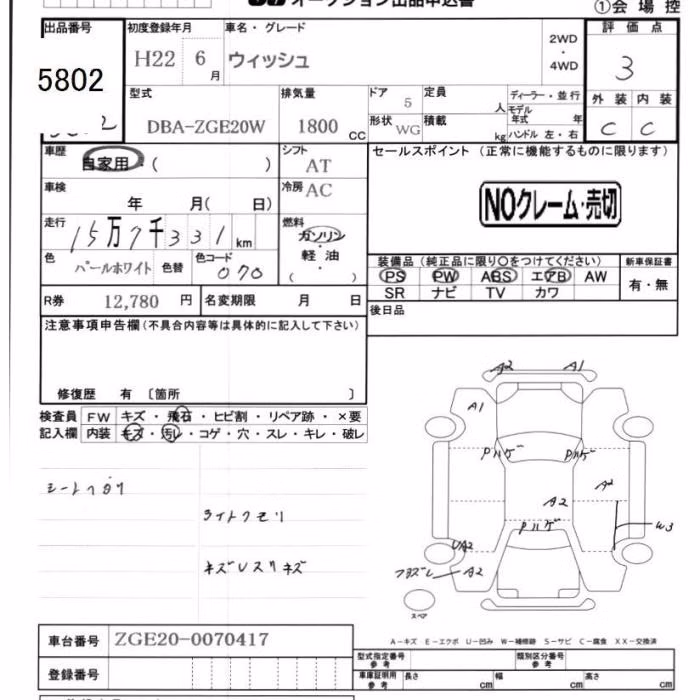 オークション出品申込書
①会場控
出品番号
5802
初度登録年月
H22 6月
車名・グレード
ウィッシュ
2WD
・
4WD
評価点
3
外装 内装
C C
型式
DBA-ZGE20W
排気量
1800 CC
ドア 5
定員 人
ディーラー・並行
モデル年式 年
形状 WG
積載 kg
ハンドル 左・右
車歴
自家用・( )
シフト AT
車検
年 月( 日)
冷房 AC
走行
15万7千331 km
燃料
ガソリン
・
軽油
・
( )
色
パールホワイト
色替
色コード
070
R券 12,780 円
名変期限 月 日
セールスポイント (正常に機能するものに限ります)
NOクレーム・売切
装備品(純正品に限り〇をつけてください)
新車保証書
PS PW ABS エアB AW
有・無
SR ナビ TV カワ
後日品
注意事項申告欄(不具合内容等は具体的に記入して下さい)
修復歴 有 〔箇所 〕
検査員 FW キズ・飛石・ヒビ割・リペア跡・×要
記入欄 内装 キズ・汚レ・コゲ・穴・スレ・キレ・破レ
シートヘタリ
ライトクモリ
キズUスリキズ
A2 A1
A1
Pハゲ Pハゲ
A2
A2
Pハゲ
W3
UA2
A2
スペア
A－キズ E－エクボ U－凹み W－補修跡 S－サビ C－腐食 XX－交換済
車台番号 ZGE20-0070417
登録番号
型式指定番号
参考
類別区分番号
参考
車庫証明用
参考
長さ cm
幅 cm
高さ cm